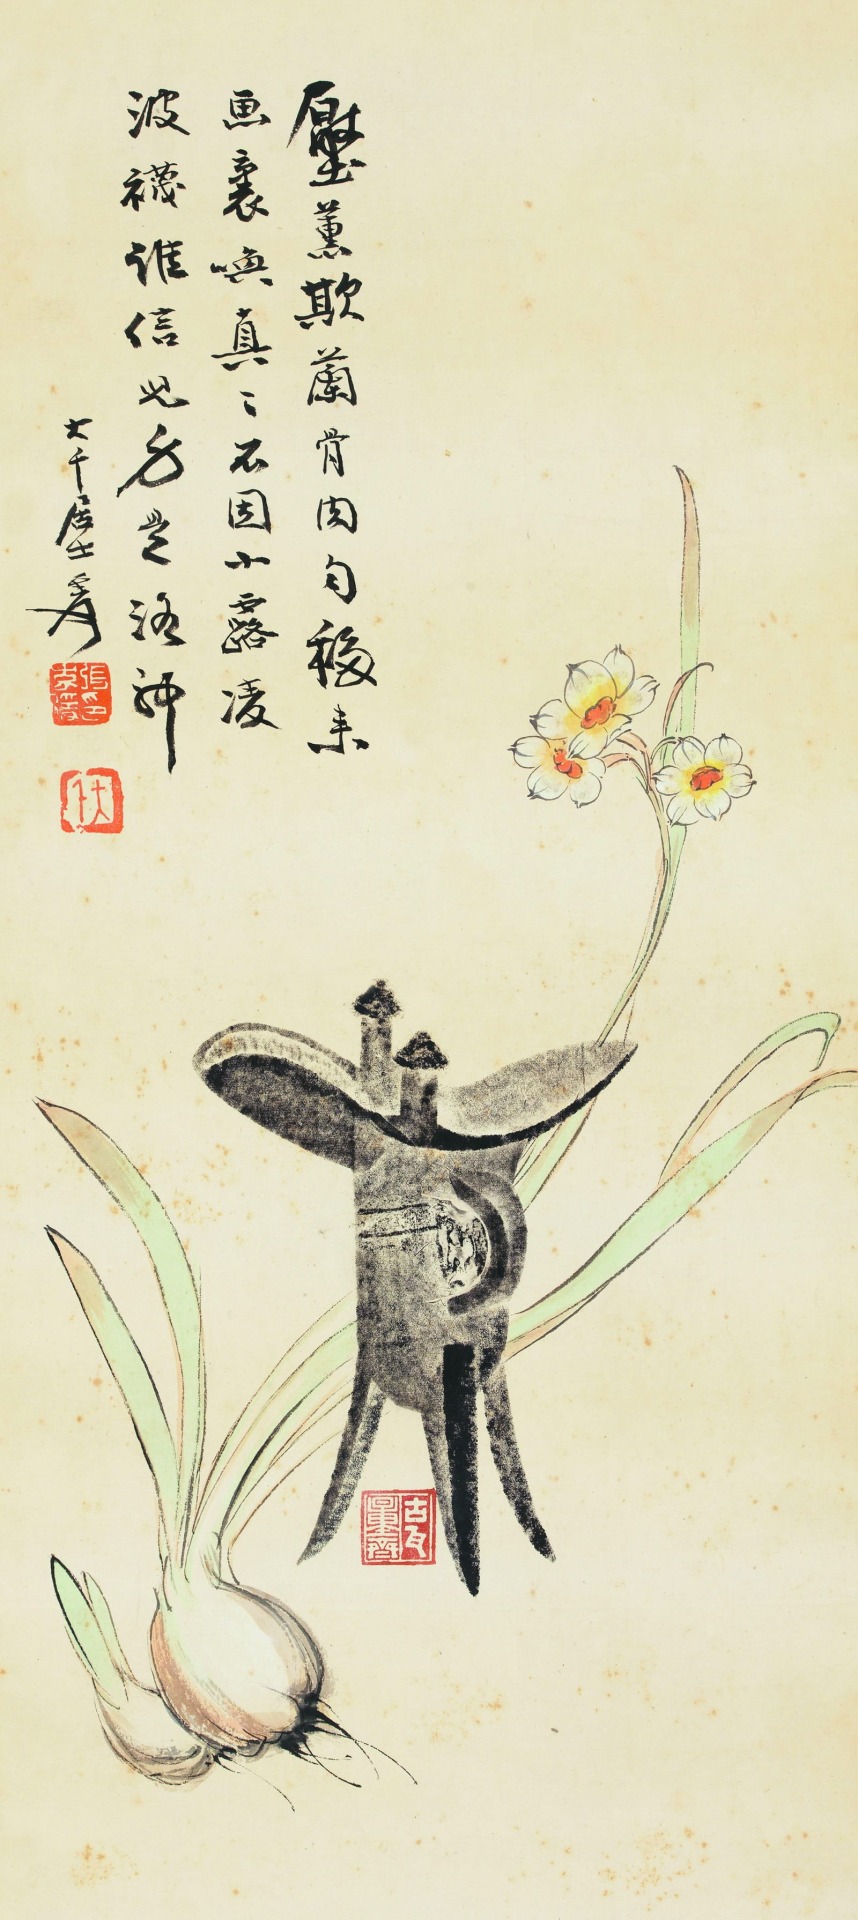 壓薰欺蘭骨肉勻移來
画裏喚真〻不因小露凌
波襪誰信此身是洛神
大千居士爰
張爰
大千
古瓦量齋